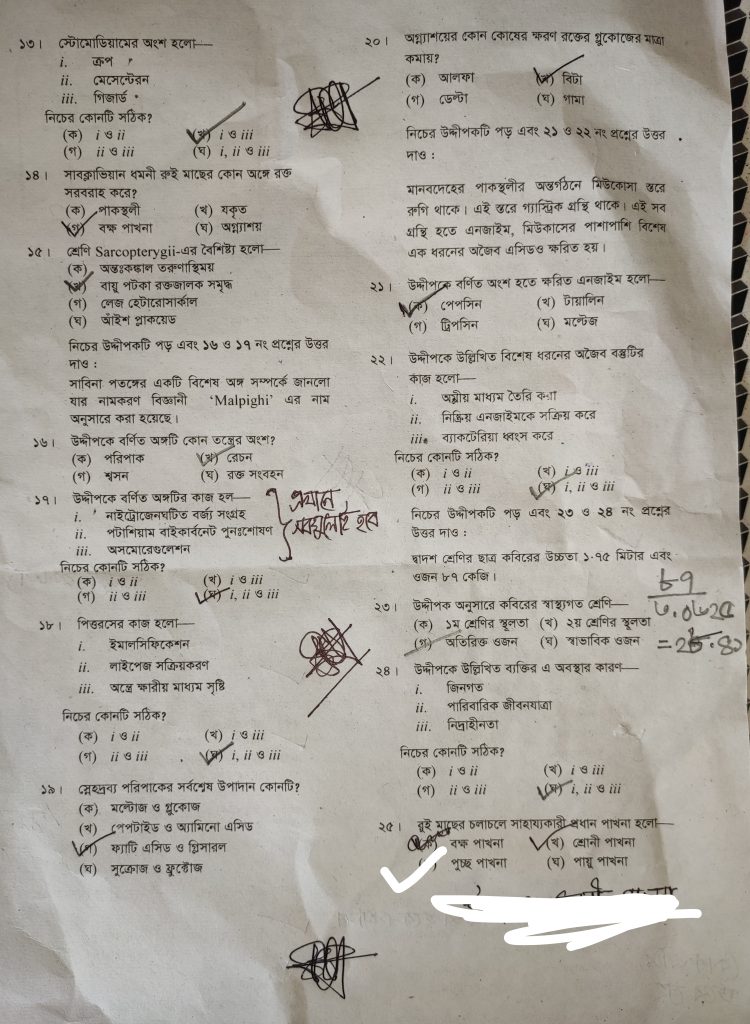 ১৩। স্টোমোডিয়ামের অংশ হলো—
i. ক্রপ
ii. মেসেন্টেরন
iii. গিজার্ড
নিচের কোনটি সঠিক?
(ক) i ও ii (খ) i ও iii
(গ) ii ও iii (ঘ) i, ii ও iii
১৪। সাবক্লাভিয়ান ধমনী রুই মাছের কোন অঙ্গে রক্ত
সরবরাহ করে?
(ক) পাকস্থলী (খ) যকৃত
(গ) বক্ষ পাখনা (ঘ) অগ্ন্যাশয়
১৫। শ্রেণি Sarcopterygii-এর বৈশিষ্ট্য হলো—
(ক) অন্তঃকঙ্কাল তরুণাস্থিময়
(খ) বায়ু পটকা রক্তজালক সমৃদ্ধ
(গ) লেজ হেটারোসার্কাল
(ঘ) আঁইশ প্লাকয়েড
নিচের উদ্দীপকটি পড় এবং ১৬ ও ১৭ নং প্রশ্নের উত্তর
দাও :
সাবিনা পতঙ্গের একটি বিশেষ অঙ্গ সম্পর্কে জানলো
যার নামকরণ বিজ্ঞানী 'Malpighi' এর নাম
অনুসারে করা হয়েছে।
১৬। উদ্দীপকে বর্ণিত অঙ্গটি কোন তন্ত্রের অংশ?
(ক) পরিপাক (খ) রেচন
(গ) শ্বসন (ঘ) রক্ত সংবহন
১৭। উদ্দীপকে বর্ণিত অঙ্গটির কাজ হল—
i. নাইট্রোজেনঘটিত বর্জ্য সংগ্রহ
ii. পটাশিয়াম বাইকার্বনেট পুনঃশোষণ
iii. অসমোরেগুলেশন
এখানে সবগুলোই হবে
নিচের কোনটি সঠিক?
(ক) i ও ii (খ) i ও iii
(গ) ii ও iii (ঘ) i, ii ও iii
১৮। পিত্তরসের কাজ হলো—
i. ইমালসিফিকেশন
ii. লাইপেজ সক্রিয়করণ
iii. অন্ত্রে ক্ষারীয় মাধ্যম সৃষ্টি
নিচের কোনটি সঠিক?
(ক) i ও ii (খ) i ও iii
(গ) ii ও iii (ঘ) i, ii ও iii
১৯। স্নেহদ্রব্য পরিপাকের সর্বশেষ উপাদান কোনটি?
(ক) মল্টোজ ও গ্লুকোজ
(খ) পেপটাইড ও অ্যামিনো এসিড
(গ) ফ্যাটি এসিড ও গ্লিসারল
(ঘ) সুক্রোজ ও ফ্রুক্টোজ
২০। অগ্ন্যাশয়ের কোন কোষের ক্ষরণ রক্তের গ্লুকোজের মাত্রা
কমায়?
(ক) আলফা (খ) বিটা
(গ) ডেল্টা (ঘ) গামা
নিচের উদ্দীপকটি পড় এবং ২১ ও ২২ নং প্রশ্নের উত্তর
দাও :
মানবদেহের পাকস্থলীর অন্তর্গঠনে মিউকোসা স্তরে
রুগি থাকে। এই স্তরে গ্যাস্ট্রিক গ্রন্থি থাকে। এই সব
গ্রন্থি হতে এনজাইম, মিউকাসের পাশাপাশি বিশেষ
এক ধরনের অজৈব এসিডও ক্ষরিত হয়।
২১। উদ্দীপকে বর্ণিত অংশ হতে ক্ষরিত এনজাইম হলো—
(ক) পেপসিন (খ) টায়ালিন
(গ) ট্রিপসিন (ঘ) মল্টেজ
২২। উদ্দীপকে উল্লিখিত বিশেষ ধরনের অজৈব বস্তুটির
কাজ হলো—
i. অম্লীয় মাধ্যম তৈরি করা
ii. নিষ্ক্রিয় এনজাইমকে সক্রিয় করে
iii. ব্যাকটেরিয়া ধ্বংস করে
নিচের কোনটি সঠিক?
(ক) i ও ii (খ) i ও iii
(গ) ii ও iii (ঘ) i, ii ও iii
নিচের উদ্দীপকটি পড় এবং ২৩ ও ২৪ নং প্রশ্নের
উত্তর দাও :
দ্বাদশ শ্রেণির ছাত্র কবিরের উচ্চতা ১.৭৫ মিটার এবং
ওজন ৮৭ কেজি।
২৩। উদ্দীপক অনুসারে কবিরের স্বাস্থ্যগত শ্রেণি—
(ক) ১ম শ্রেণির স্থূলতা (খ) ২য় শ্রেণির স্থূলতা
(গ) অতিরিক্ত ওজন (ঘ) স্বাভাবিক ওজন
৮৭
৩.০৬২৫
২৪। উদ্দীপকে উল্লিখিত ব্যক্তির এ অবস্থার কারণ—
i. জিনগত
ii. পারিবারিক জীবনযাত্রা
iii. নিদ্রাহীনতা
নিচের কোনটি সঠিক?
(ক) i ও ii (খ) i ও iii
(গ) ii ও iii (ঘ) i, ii ও iii
২৫। রুই মাছের চলাচলে সাহায্যকারী প্রধান পাখনা হলো—
বক্ষ পাখনা (খ) শ্রোনী পাখনা
পুচ্ছ পাখনা (ঘ) পায়ু পাখনা